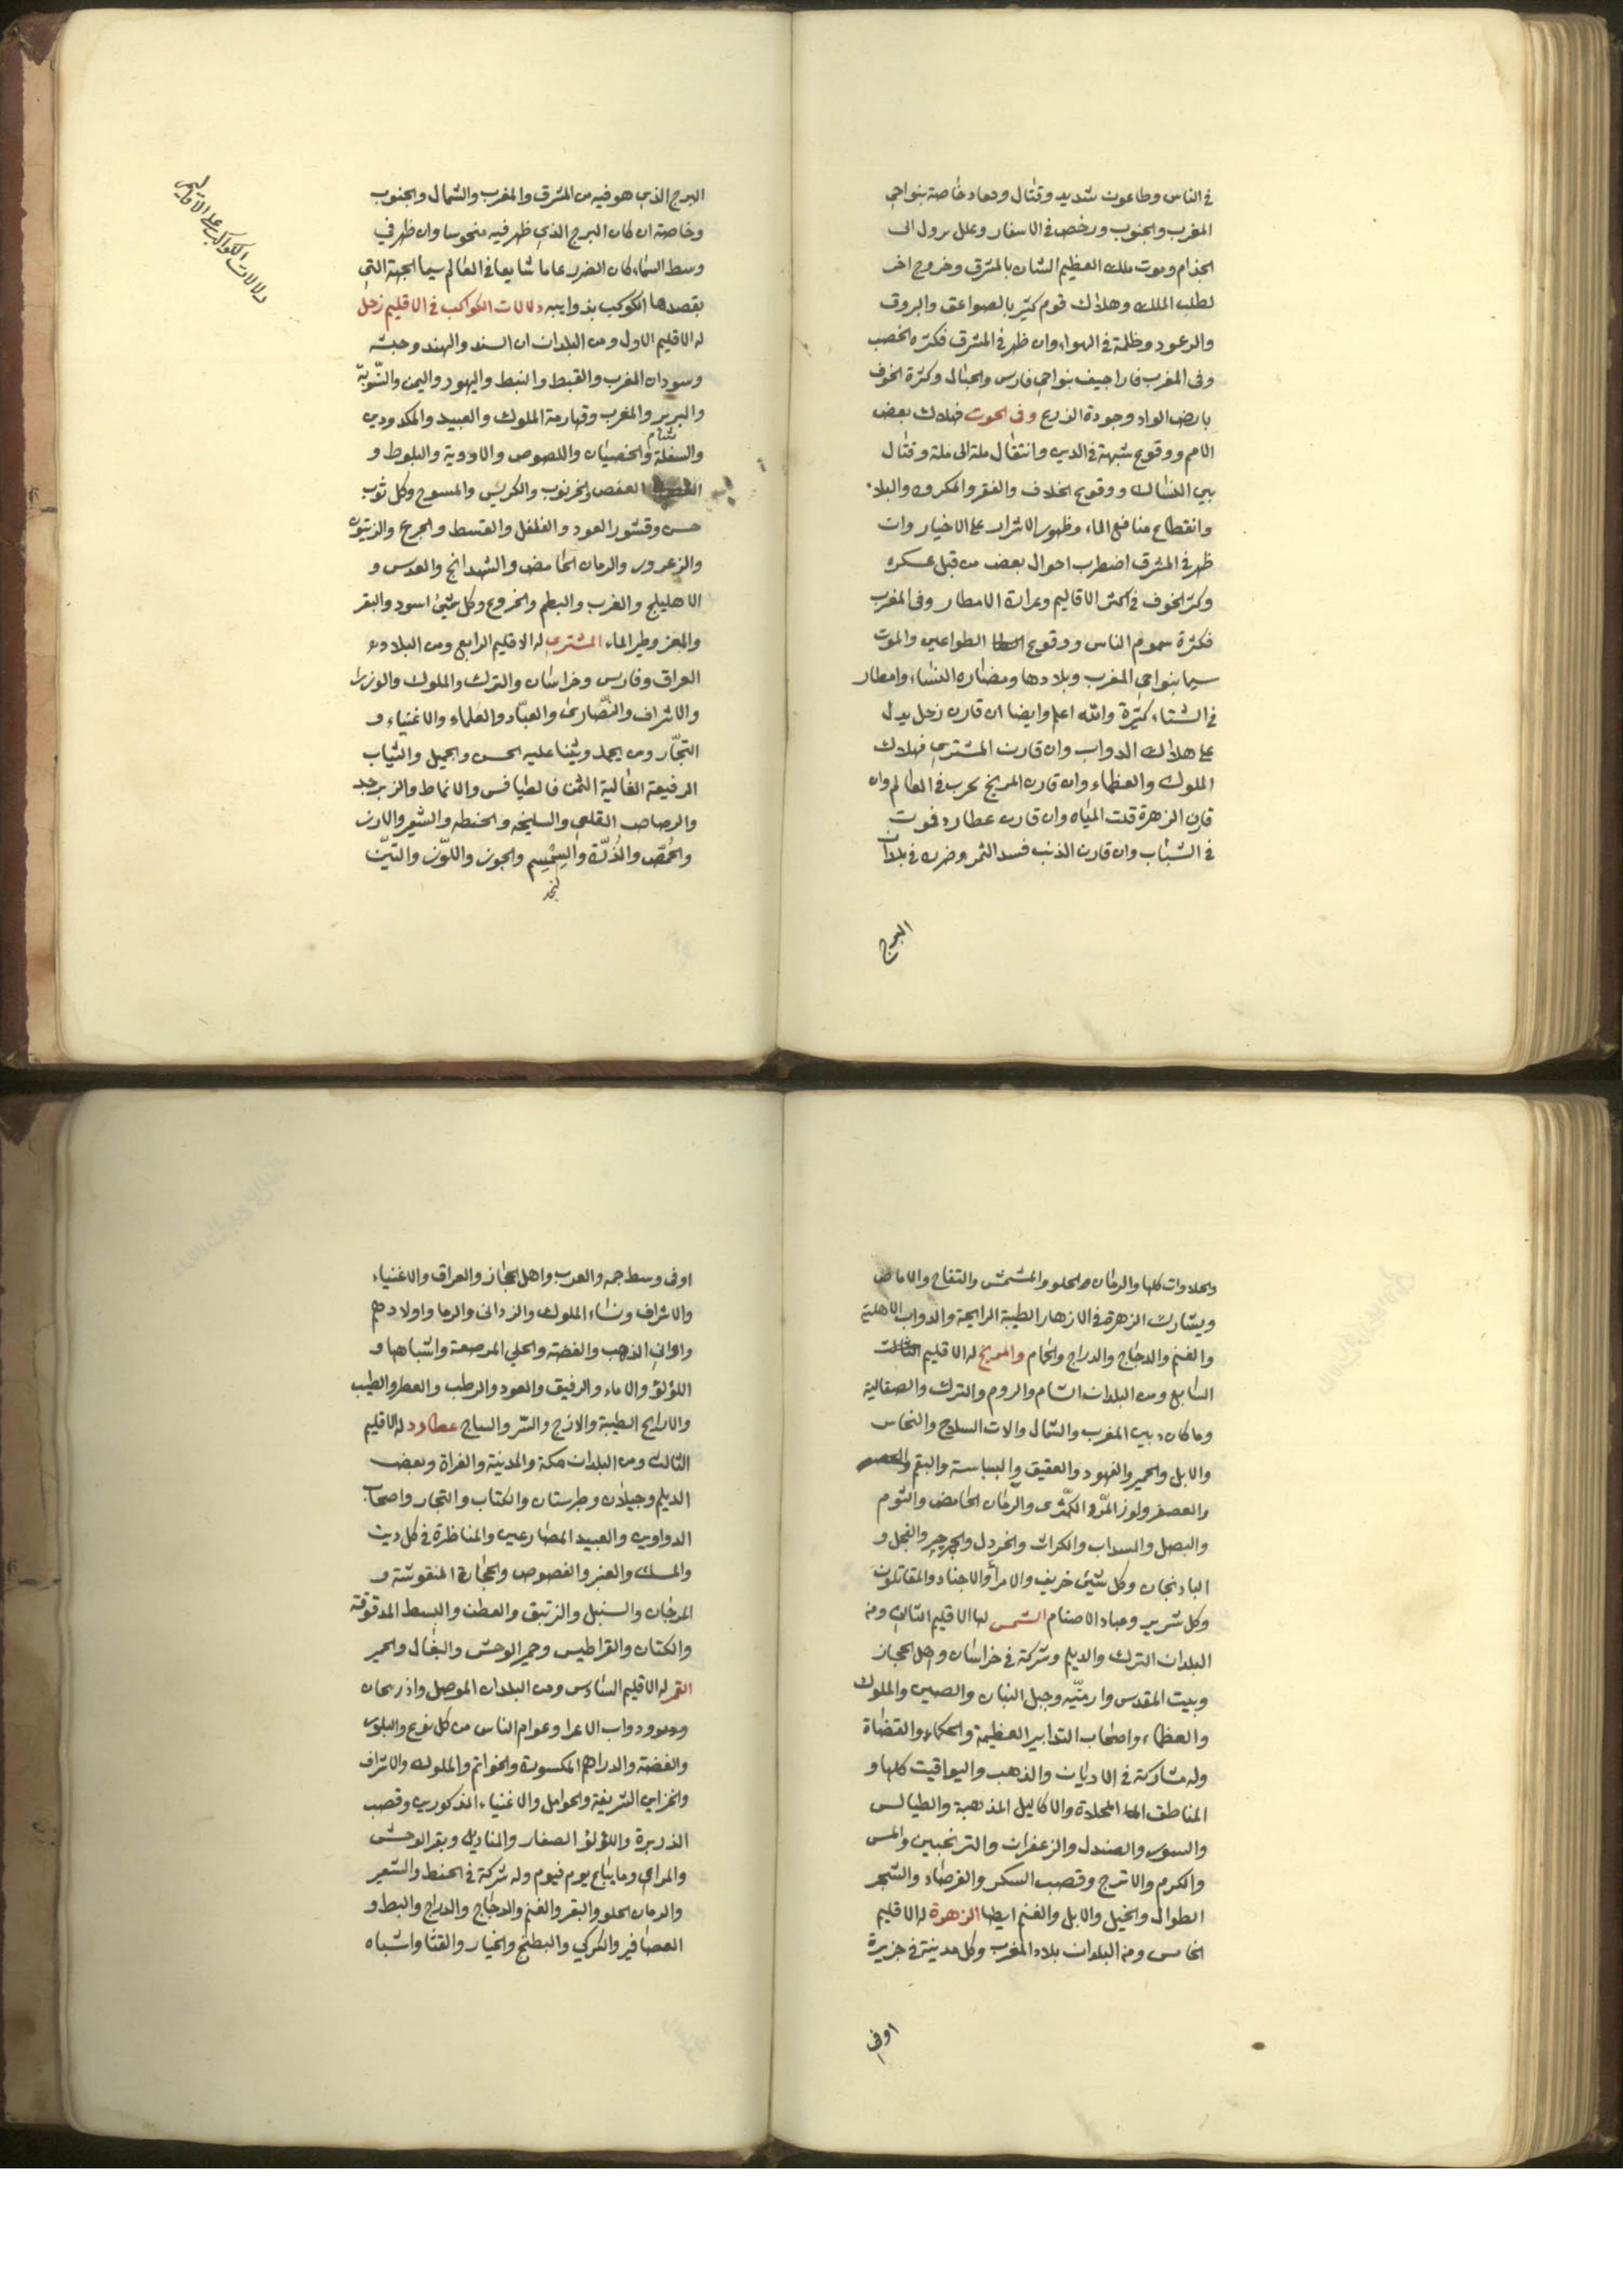 في الناس وطاعون شديد وقتال وفساد خاصة بنواحي
المغرب والجنوب ورخص في الاسفار وعلل يؤول الى
الجذام وموت ملك العظيم الشان بالمشرق وخروج اخر
لطلب الملك وهلاك قوم كثير بالصواعق والبروق
والرعود وظلمة في الهواء وان ظهر في المشرق فكثرة الخصب
وفى المغرب فاراجيف بنواحي فارس والجبال وكثرة الخوف
بارض الواد وجودة الزرع وفى الحوت فهلاك بعض
الامم ووقوع شبهة في الدين وانتقال ملة الى ملة وقتال
بين النساك ووقوع الخلاف والفقر والمكروه والبلاء
وانقطاع منافع الماء وظهور الاشرار على الاخيار وان
ظهر في المشرق اضطرب احوال بعض من قبل عسكره
وكثر الخوف في اكثر الاقاليم وغزارة الامطار وفى المغرب
فكثرة سموم الناس ووقوع الطواعين والموت
سيما بنواحي المغرب وبلادها ومضاره النساء وامطار
في الشتاء كثيرة والله اعلم وايضا ان قارن زحل يدل
على هلاك الدواب وان قارن المشتري فهلاك
الملوك والعظماء وان قارن المريخ يحرب في العالم وان
قارن الزهرة قلت المياه وان قارن عطارد فموت
في الشباب وان قارن الذنب فسد الثمر وضره في بلدان
البرج
البرج الذي هو فيه من المشرق والمغرب والشمال والجنوب
وخاصة ان كان البرج الذي ظهر فيه منحوسا وان ظهر في
وسط السماء كان الضرر عاما شايعا في العالم سيما الجهة التي
يقصدها الكوكب بذوايبه دلالات الكواكب في الاقليم زحل
دلالات الكواكب على الاقاليم
له الاقليم الاول ومن البلدان ان السند والهند وحبشه
وسودان المغرب والقبط والنبط واليهود واليمن والنّوبة
والبربر والمغرب وقهارمة الملوك والعبيد والمكدودين
والسفلة والخصيان واللصوص والاودية والبلوط و
العفص والخرنوب والكريس والمسوح وكل ثوب
حسن وقشور العود والفلفل والقسط والجرع والزيتون
والزعرور والرمان الحامض والشهدانج والعدس و
الاهليلج والغرب والبطم والخروع وكل شئ اسود والبقر
والمعز وطير الماء المشتري له الاقليم الرابع ومن البلاد
العراق وفارس وخراسان والترك والملوك والوزراء
والاشراف والنّصارى والعبّاد والعلماء والاغنياء و
التجّار ومن يحمل ويثنا عليه الحسن والجميل والثياب
الرفيعة الغالية الثمن فالطيافس والانماط والزبرجد
والرصاص القلعي والسليخه والحنطه والشعير والارز
والحمّص والذُرّة والسِمسِم والجوز واللوّز والتيّن
والحلاوات كلها والرمان الحلو والمشمش والتفاح والاماص
ويشارك الزهرة في الازهار الطيبة الرايحة والدواب الاهلية
والغنم والدجاج والدراج والحمام والمريخ له الاقليم الثالث
السابع ومن البلدان الشام والروم والترك والصقالبة
وما كان بين المغرب والشمال والات السلاح والنحاس
والابل والحمير والفهود والعقيق والبسباسة والبقم
والعصفر ولوز المرّ والكمّثرى والرمّان الحامض والثوم
والبصل والسداب والكراث والخردل والجرجير والفجل و
الباذنجان وكل شئ خريف والامرأ والاجناد والمقاتلون
وكل شرير وعباد الاصنام الشمس لها الاقليم الثالث ومن
البلدان الترك والديلم وشركة في خراسان واهل الحجاز
وبيت المقدس وارمنّيه وجبل البنان والصين والملوك
والعظماء واصحاب التدابير العظيمة والحكماء والقضاة
وله مشاركة في الاديان والذهب واليواقيت كلها و
المناطق المحلاة والاكاليل المذهبة والطيالس
والسمور والصندل والزعفران والترنجبين والمس
والكرم والاترج وقصب السكر والفرصاد والشجر
الطوال والخيل والابل والغنم ايضا الزهرة له الاقليم
الخامس ومن البلدان بلاد المغرب وكل مدينة في جزيرة
اوفى
اوفى وسط جمه والعرب واهل الحجاز والعراق والاغنياء
والاشراف ونساء الملوك والزوانى والرما واولادهم
واوانى الذهب والفضة والحلي المرصعة واشباهها و
اللؤلؤ والاماء والرقيق والعود والرطب والعطر والطيب
والارايح الطيبة والاترج والستر والسياج عطارد له الاقليم
الثالث ومن البلدان مكة والمدينة والفراة وبعض
الديلم وجيلان وطبرستان والكتاب والتجار واصحاب
الدواوين والعبيد المصارعين والمناظرة في كل دين
والمسك والعنبر والفصوص والحجارة المنقوشة و
المرجان والسنبل والزئبق والعطف والبسط المدقوقة
والكتان والقراطيس وحمير الوحش والبغال والحمير
القمر له الاقليم السادس ومن البلدان الموصل واذربيجان
ودواب الاعرا وعوام الناس من كل نوع والبلور
والفضة والدراهم المكسورة والخواتم والملوك والاشراف
والخزاين الشريفة والحوامل والاغنياء المذكورين وقصب
الذريرة واللؤلؤ الصغار والمناديل وبقر الوحش
والمراعي وما يتاع يوم فيوم وله شركة في الحنط والشعير
والرمان الحلو والبقر والغنم والدجاج والدراج والبط و
العصافير والكركي والبطيخ والخيار والقثا واشباه